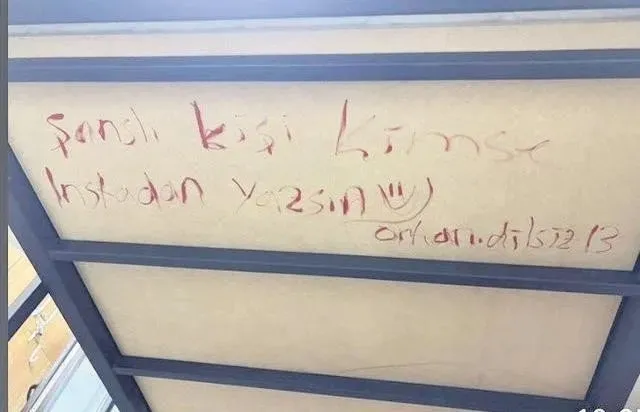 Şanslı kişi Kimse
Instadan Yazsın
orhan.dilsiz13